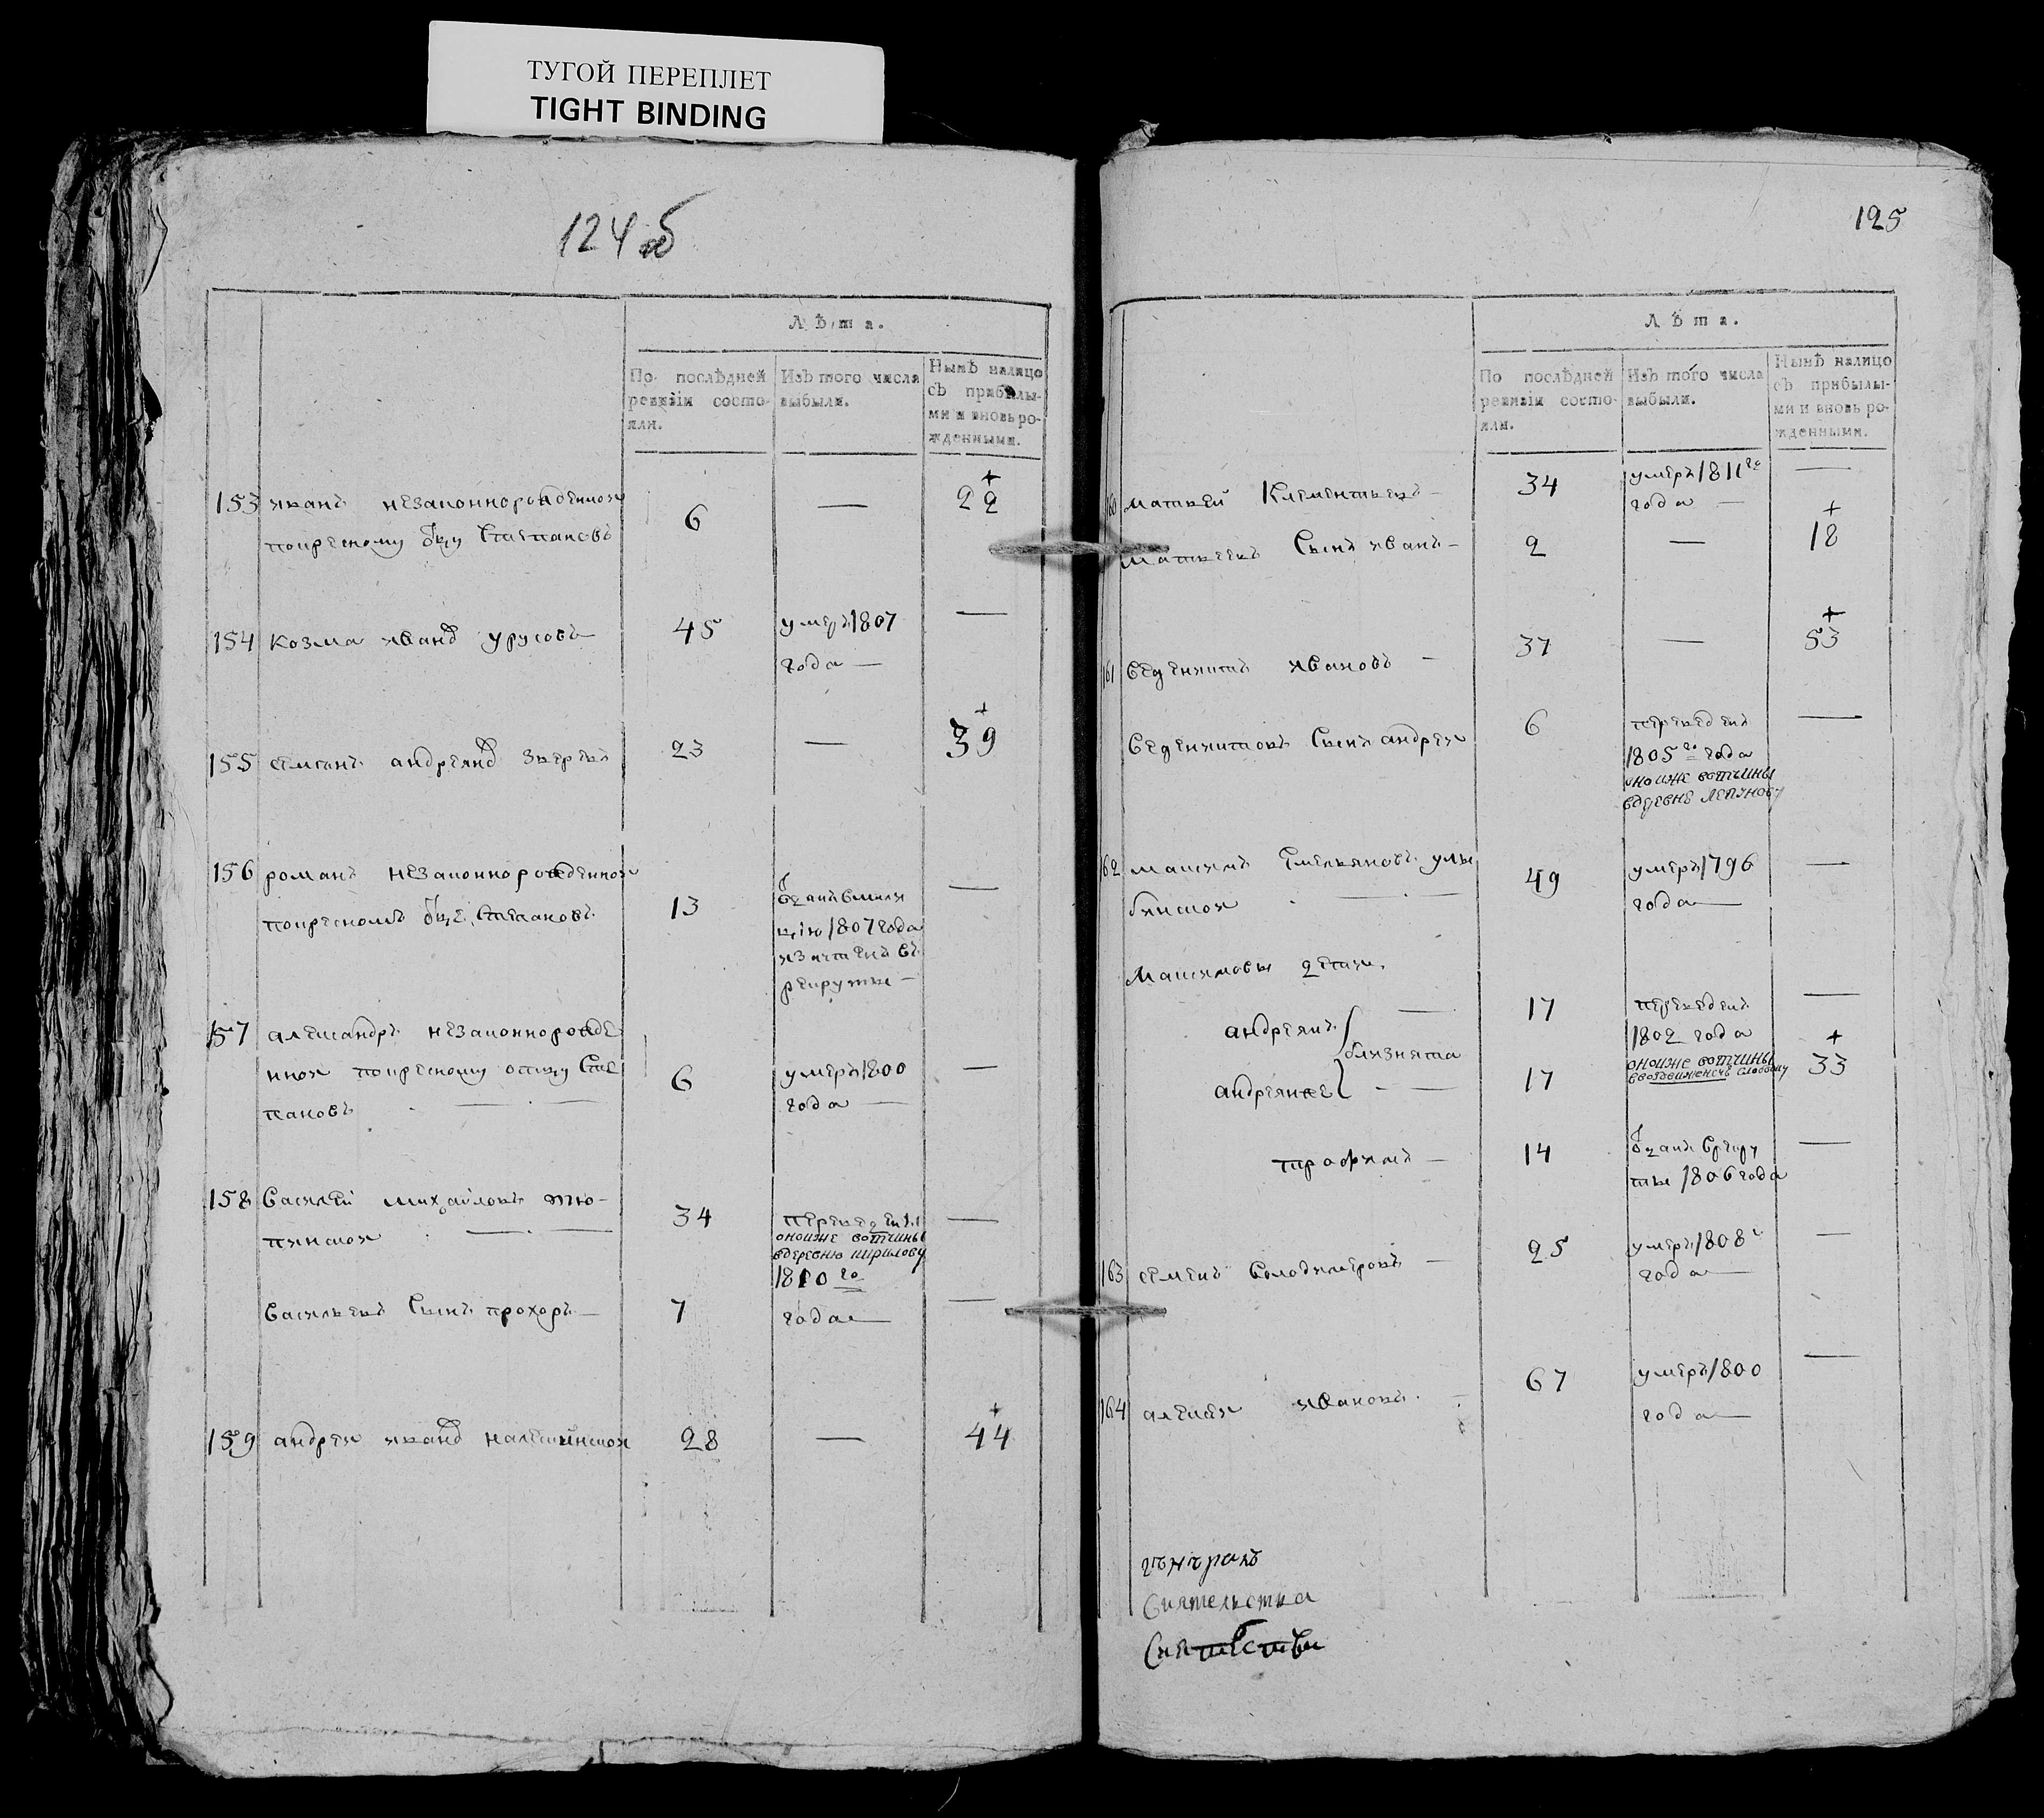 ТУГОЙ ПЕРЕПЛЕТ
TIGHT BINDING
124 об
Лѣта.
По послѣдней ревизіи состояли.
Изъ того числа выбыли.
Нынѣ налицо съ прибылыми и вновь рожденными.
153 иванъ незаконнорожденнои 6 — 22
покресному отцу Степановъ
154 козма иванов урусовъ — 45 умеръ 1807 —
года —
155 семенъ андреянов зверевъ 23 — 39
156 романъ незаконнорожденнои
покресномъ отце Степановъ 13 —
1807 года
и зачтенъ въ
рекруты —
157 александръ незаконнорожде
ннои покресному отцу Сте 6 умеръ 1800 —
пановъ — года —
158 василей михайловъ тю-
пинскои — 34 переведенъ —
оноиже вотчины
вдеревню кирилову
1810 го
васильевъ сынъ прохоръ — 7 года — —
159 андреи иванов 28 — 44
125
Лѣта.
По послѣдней ревизіи состояли.
Изъ того числа выбыли.
Нынѣ налицо съ прибылыми и вновь рожденными.
160 матвей Клементьевъ — 34 умеръ 1811 го —
года —
матвеевъ Сынъ иванъ — 2 — 18
161 веденихтъ ивановъ — 37 — 53
веденихтовъ Сынъ андреи 6 переведенъ —
1805 го года
оноиже вотчины
вдеревнѣ
162 максимъ Емельяновъ улы
бинскои — 49 умеръ 1796 —
года —
Максимовы дети
андреянъ — 17 переведенъ —
близнята 1802 года
андреянже — — 17 оноиже вотчины 33
ввоздвиженскѣ слободку
трофимъ — 14 отданъ Врекру —
ты 1806 года
163 семенъ Володимеровъ — 25 умеръ 1808 —
года —
164 алексеи ивановъ — 67 умеръ 1800 —
года —
Сиятельства